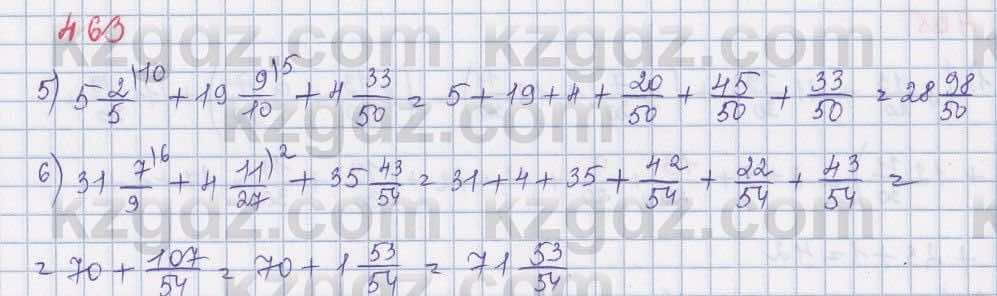 463
5) 5 2/5 |10 + 19 9/10 |5 + 4 33/50 = 5 + 19 + 4 + 20/50 + 45/50 + 33/50 = 28 98/50
6) 31 7/9 |6 + 4 11/27 |2 + 35 43/54 = 31 + 4 + 35 + 42/54 + 22/54 + 43/54 =
= 70 + 107/54 = 70 + 1 53/54 = 71 53/54
kzgdz.com kzgdz.com
kzgdz.com
kzgdz.com kzgdz.com